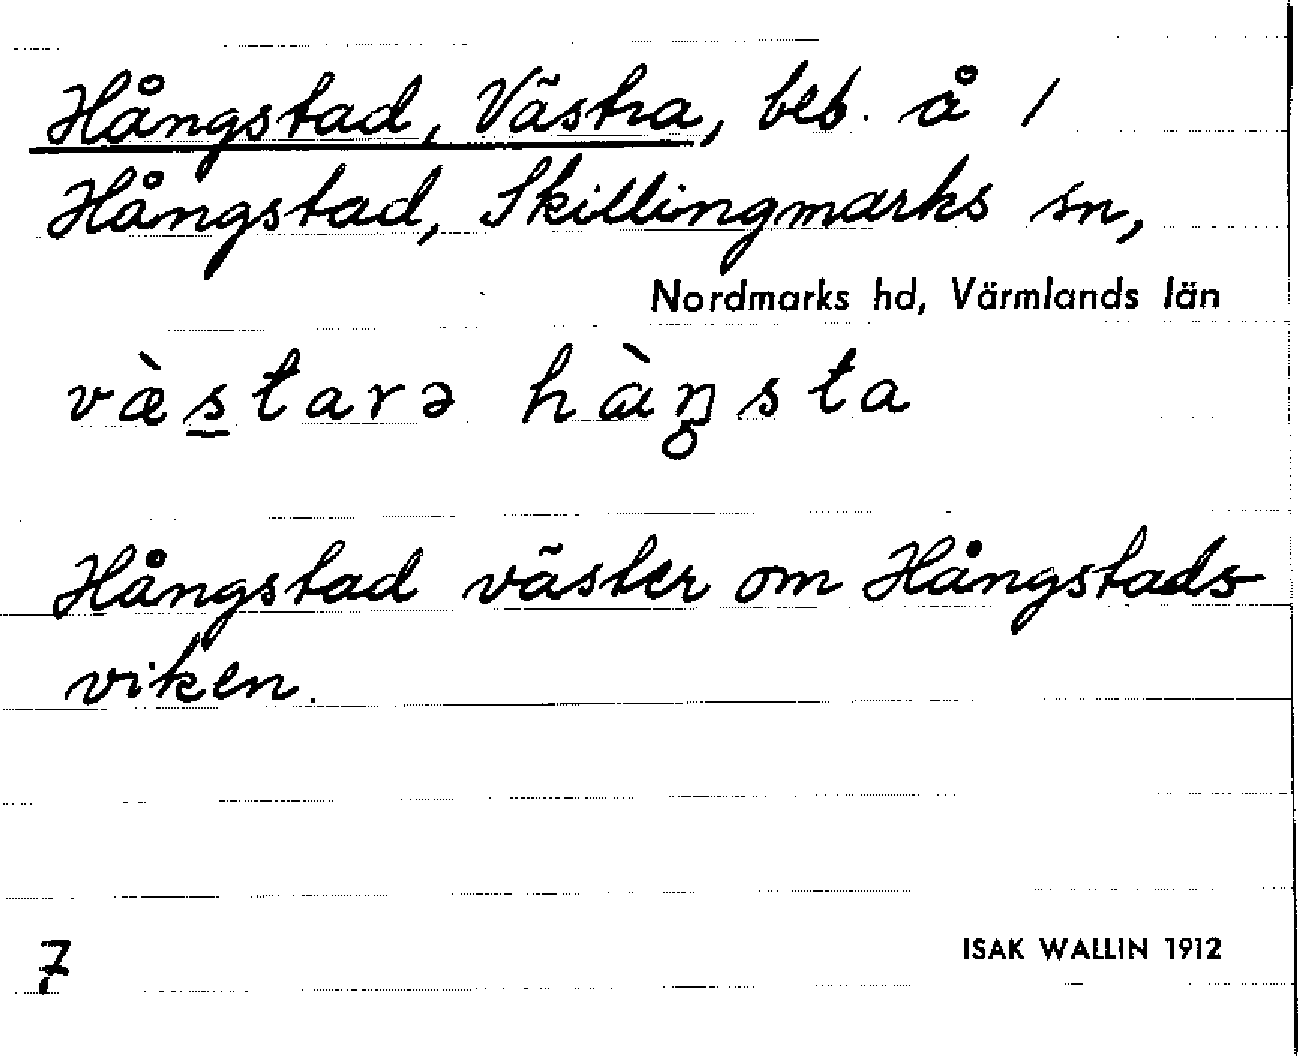 Hångstad, Västra, beb. å 1
Hångstad, Skillingmarks sn,
Nordmarks hd, Värmlands län
væ̀s̱tarə hàŋ̥sta
Hångstad väster om Hångstads-
viken.
7
ISAK WALLIN 1912